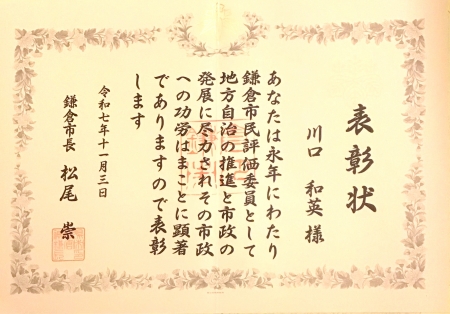 表彰状
川口 和英 様
あなたは永年にわたり
鎌倉市民評価委員として
地方自治の推進と市政の
発展に尽力されその市政
への功労はまことに顕著
でありますので表彰
します
令和七年十一月三日
鎌倉市長 松尾 崇